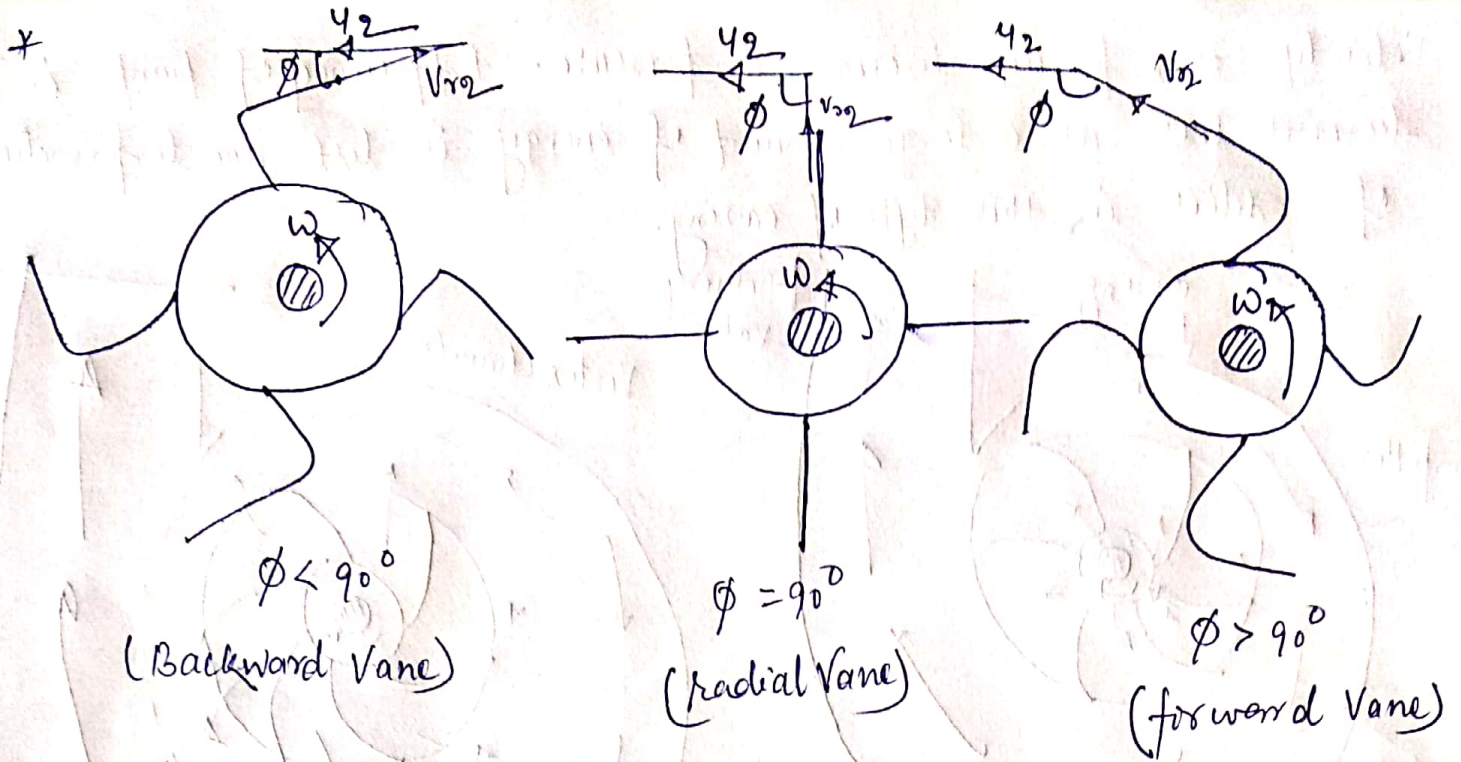 *
u2
ϕ
Vr2
ω
ϕ < 90°
(Backward Vane)
u2
ϕ
Vr2
ω
ϕ = 90°
(radial Vane)
u2
Vr2
ϕ
ω
ϕ > 90°
(forward Vane)